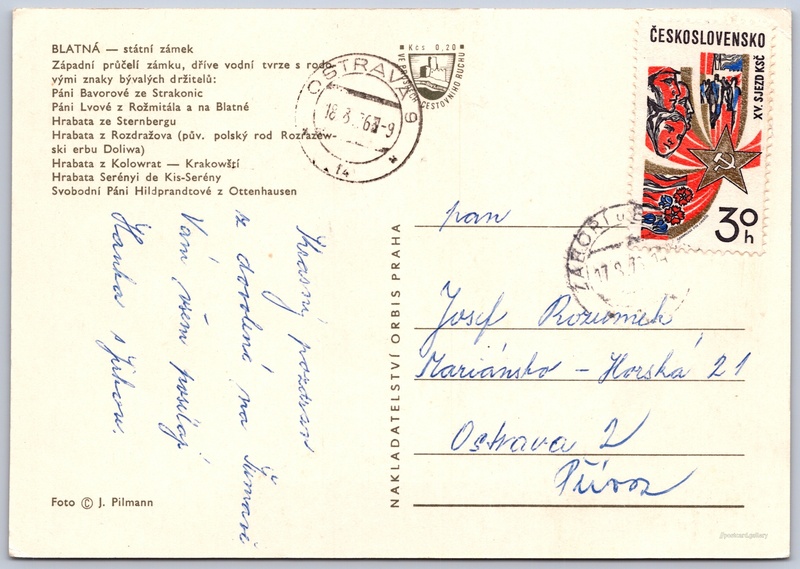 BLATNÁ — státní zámek
Západní průčelí zámku, dříve vodní tvrze s rodo-
vými znaky bývalých držitelů:
Páni Bavorové ze Strakonic
Páni Lvové z Rožmitála a na Blatné
Hrabata ze Sternbergu
Hrabata z Rozdražova (pův. polský rod Rozrazew-
ski erbu Doliwa)
Hrabata z Kolowrat — Krakowští
Hrabata Serényi de Kis-Serény
Svobodní Páni Hildprandtové z Ottenhausen
OSTRAVA 9
Kčs 0,20
CESTOVNÍHO RUCHU
ČESKOSLOVENSKO
XV. SJEZD KSČ
30h
Krásný pozdrav
z dovolené na Šumavě
Vám všem posílají
Hanka s Jirkou.
NAKLADATELSTVÍ ORBIS PRAHA
pan
Josef Rozumek
Mariánsko - Horská 21
Ostrava 2
Přívoz
Foto © J. Pilmann